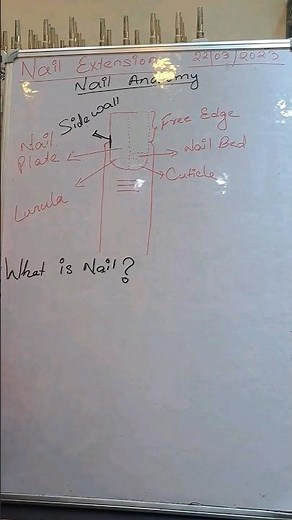 Nail Extension 22/03/2023
Nail Anatomy
Side wall
Free Edge
Nail
Plate
Nail Bed
Cuticle
Lunula
What is Nail?